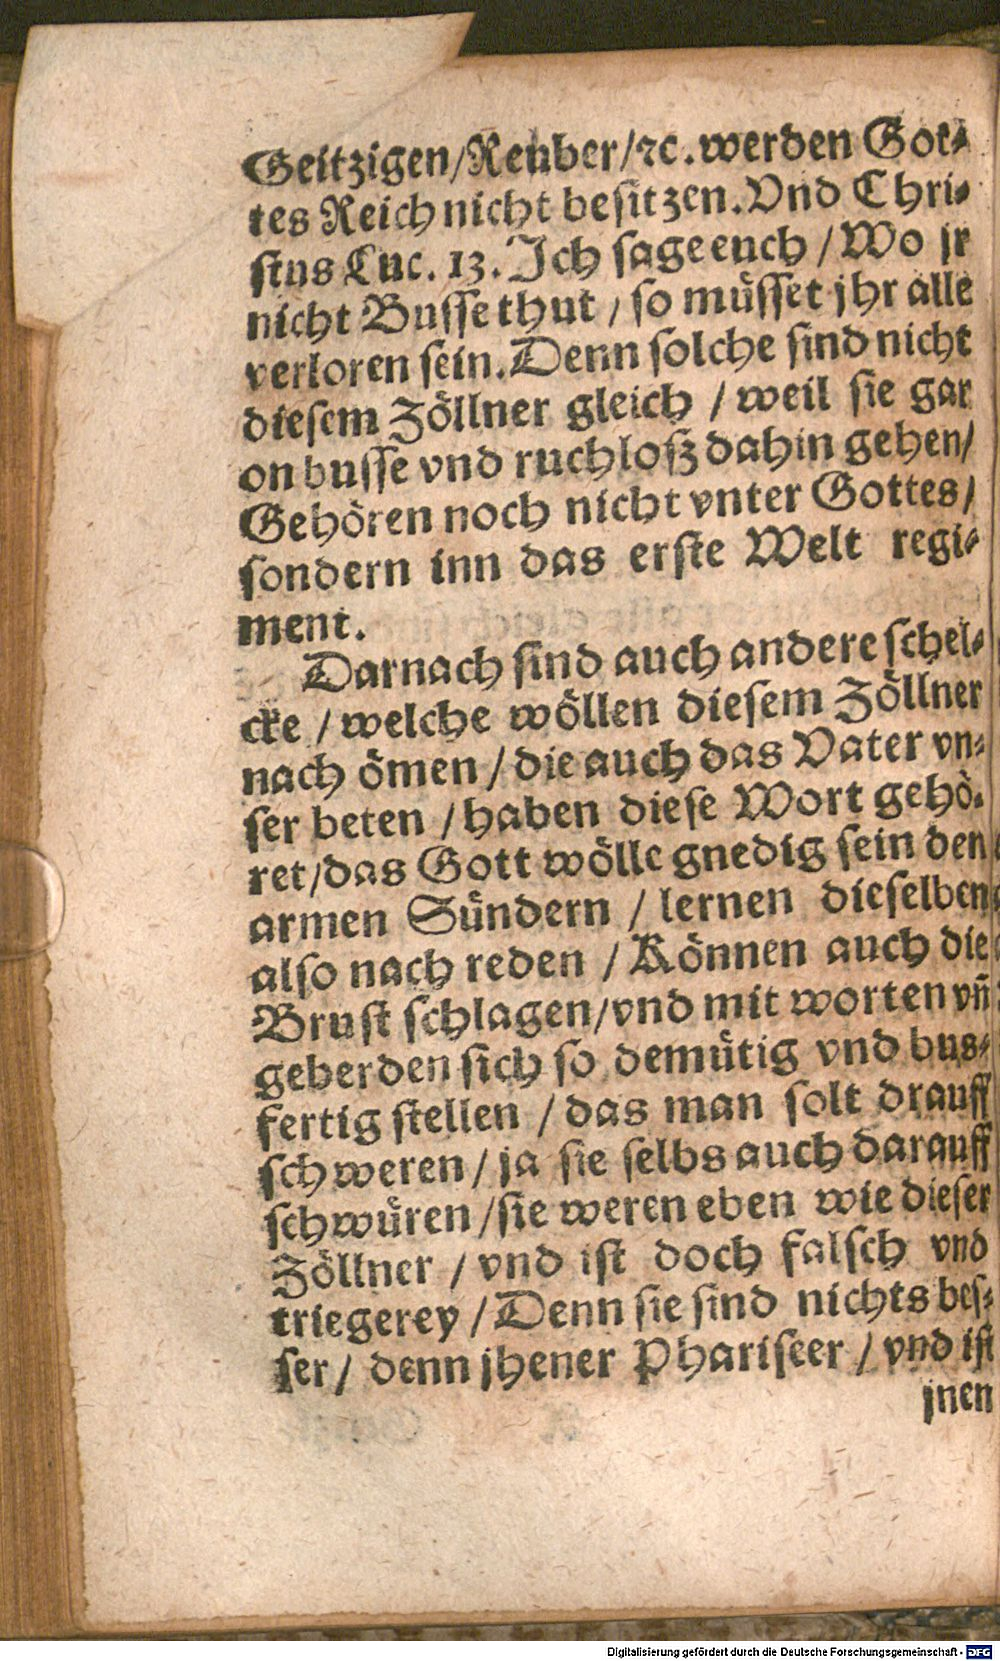 Geitzigen/Reuber/ꝛc. werden Got⸗
tes Reich nicht besitzen. Vnd Chri⸗
stus Luc. 13. Ich sage euch / Wo jr
nicht Busse thut / so müsset jhr alle
verloren sein. Denn solche sind nicht
diesem Zöllner gleich / weil sie gar
on busse vnd ruchloß dahin gehen/
Gehören noch nicht vnter Gottes/
sondern inn das erste Welt regi⸗
ment.
Darnach sind auch andere schel⸗
cke / welche wöllen diesem Zöllner
nach ömen / die auch das Vater vn⸗
ser beten / haben diese Wort gehö⸗
ret/das Gott wölle gnedig sein den
armen Sündern / lernen dieselben
also nach reden / Können auch die
Brust schlagen/vnd mit worten vñ
geberden sich so demütig vnd bus⸗
fertig stellen / das man solt drauff
schweren / ja sie selbs auch darauff
schwüren /sie weren eben wie dieser
Zöllner / vnd ist doch falsch vnd
triegerey / Denn sie sind nichts bes⸗
ser / denn jhener Phariseer / vnd ist
jnen
Digitalisierung gefördert durch die Deutsche Forschungsgemeinschaft - DFG